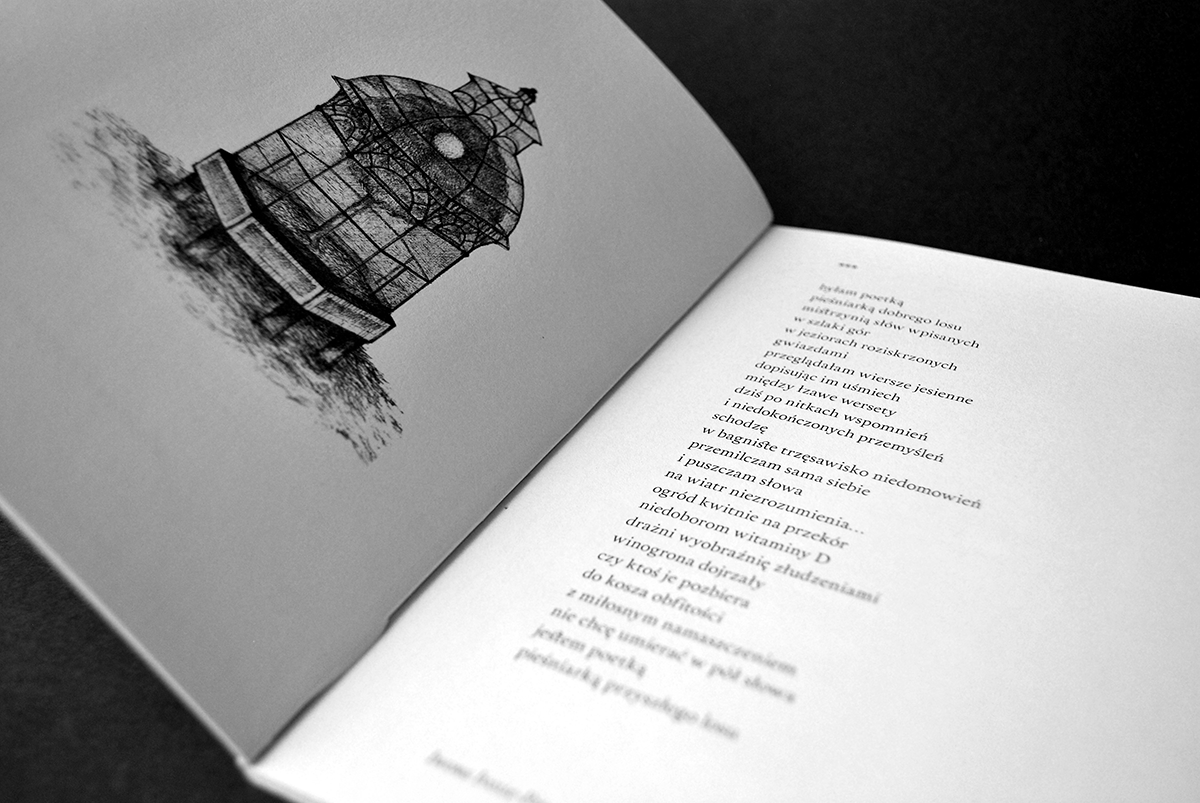 ***
byłam poetką
pieśniarką dobrego losu
mistrzynią słów wpisanych
w szlaki gór
w jeziorach roziskrzonych
gwiazdami
przeglądałam wiersze jesienne
dopisując im uśmiech
między łzawe wersety
dziś po nitkach wspomnień
i niedokończonych przemyśleń
schodzę
w bagniste trzęsawisko niedomowień
przemilczam sama siebie
i puszczam słowa
na wiatr niezrozumienia...
ogród kwitnie na przekór
niedoborom witaminy D
drażni wyobraźnię złudzeniami
winogrona dojrzały
czy ktoś je pozbiera
do kosza obfitości
z miłosnym namaszczeniem
nie chcę umierać w pół słowa
jestem poetką
pieśniarką przyszłego losu